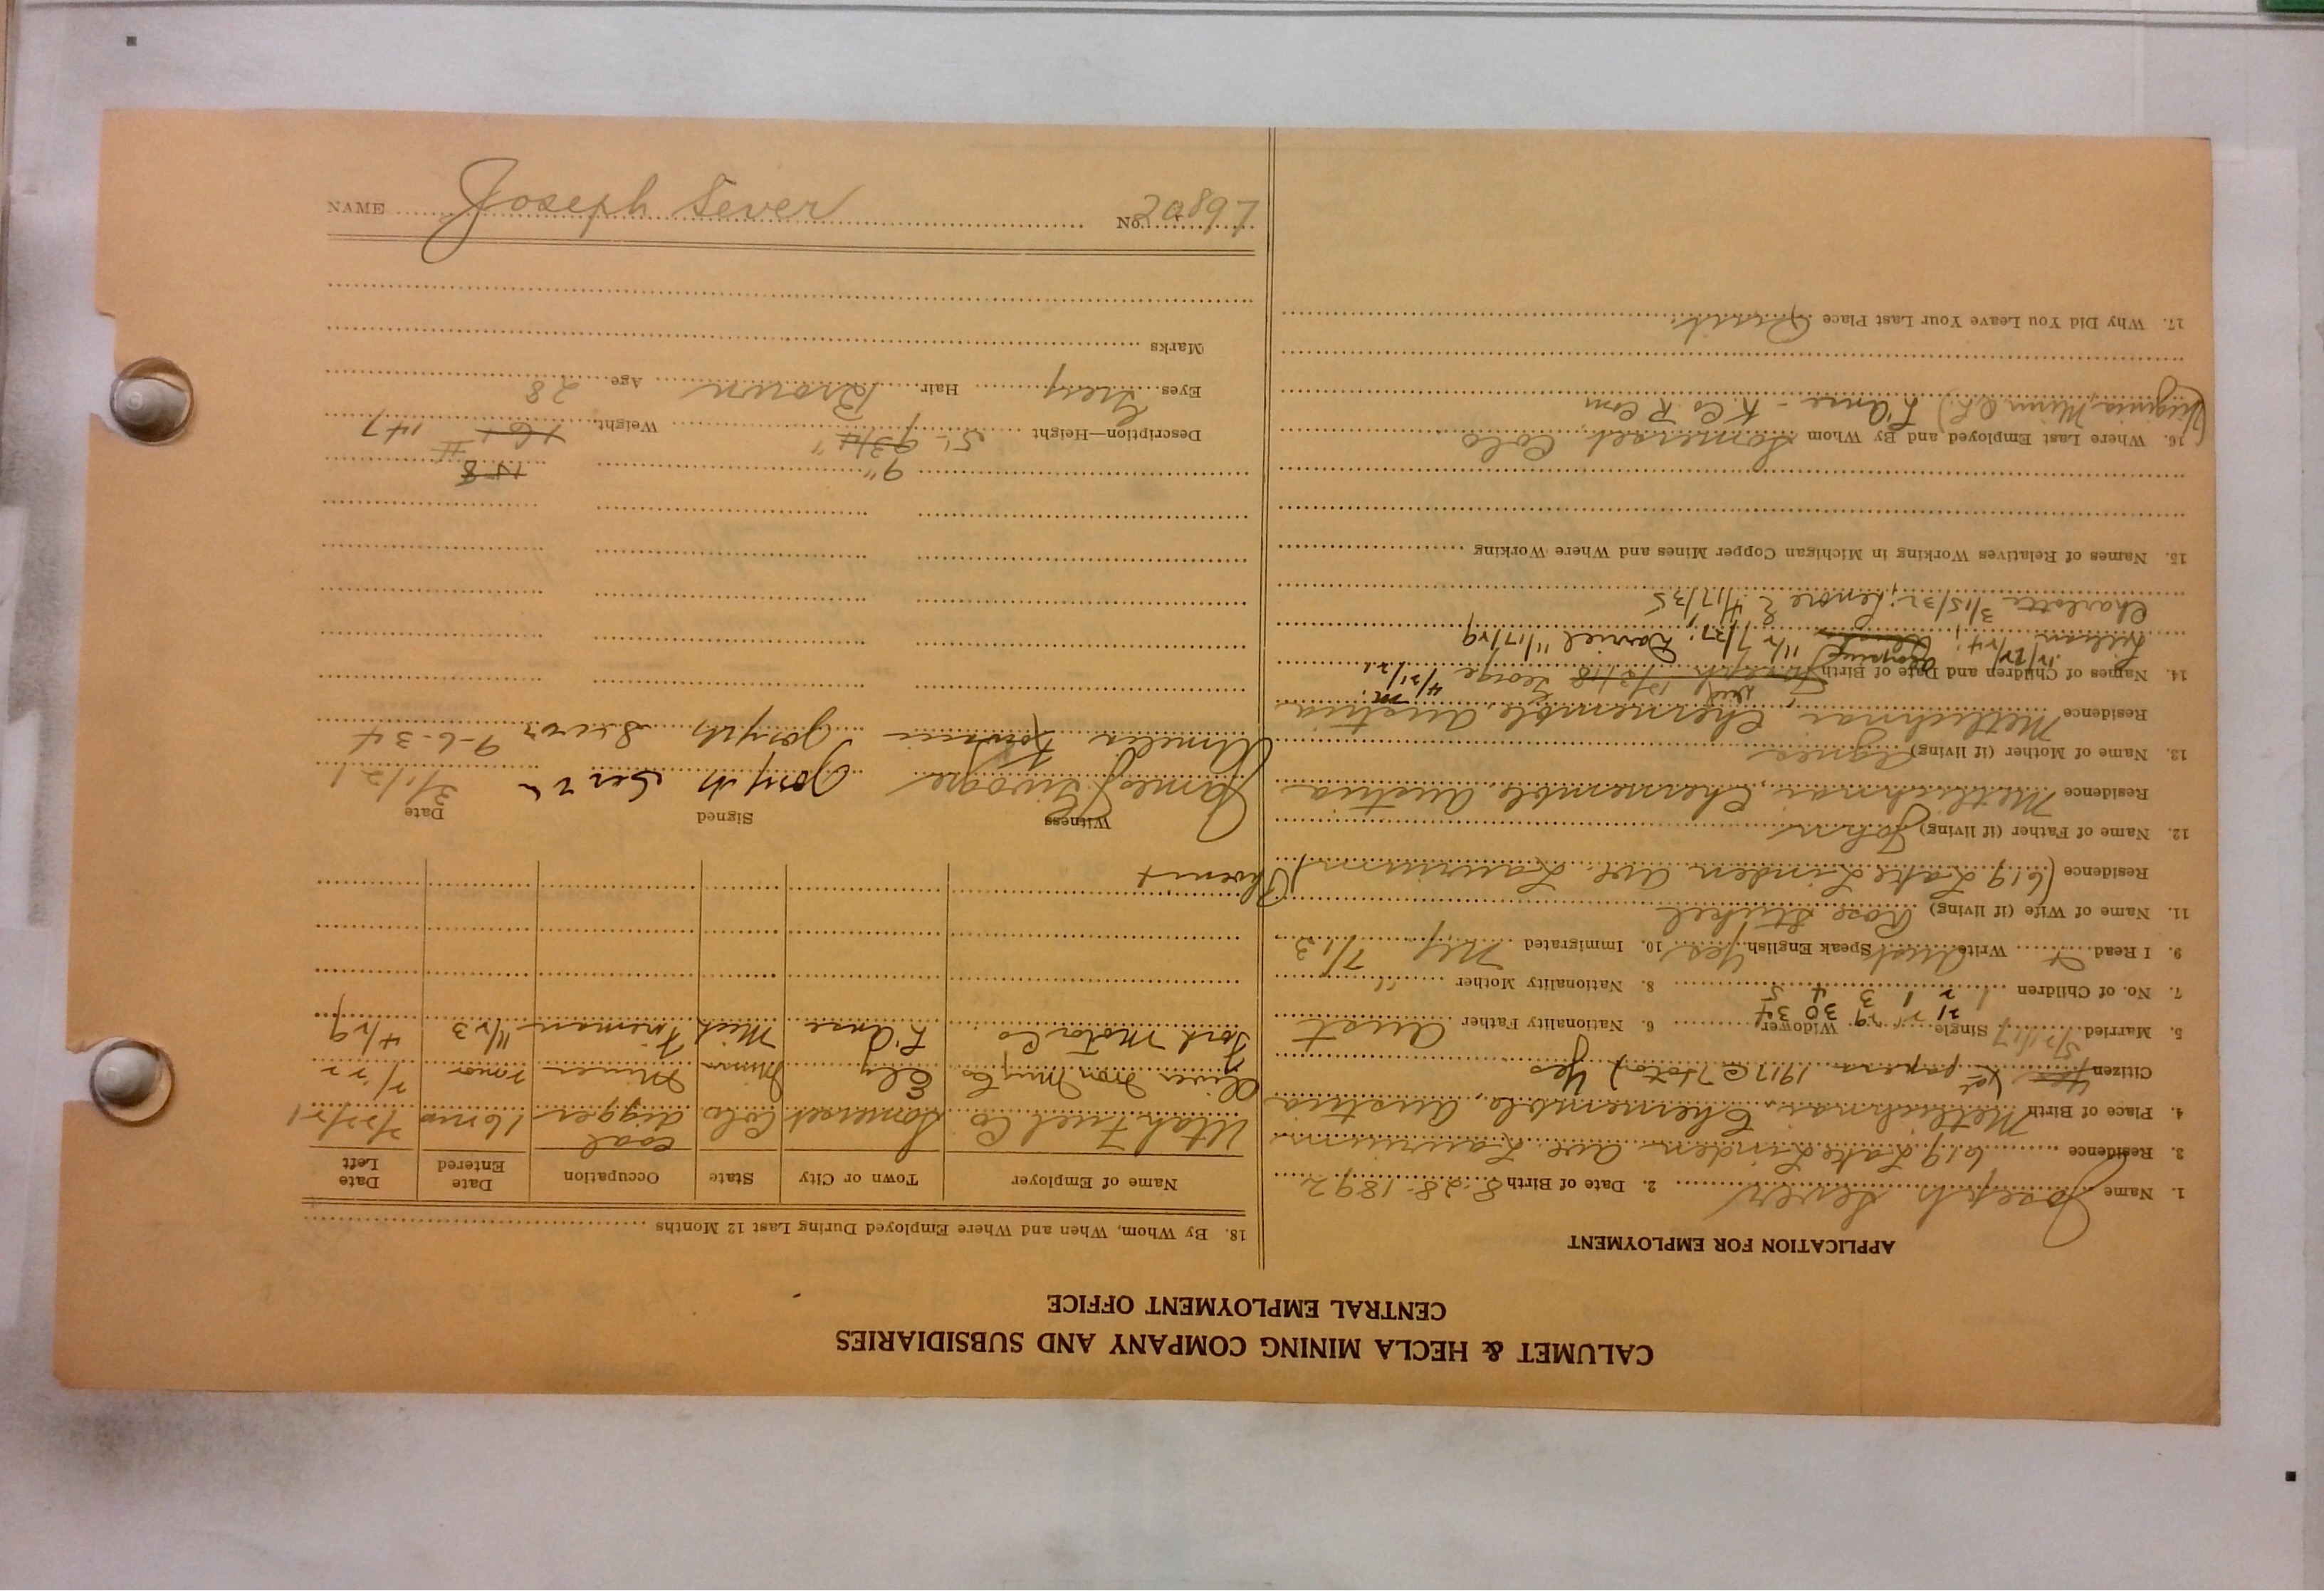 CALUMET & HECLA MINING COMPANY AND SUBSIDIARIES
CENTRAL EMPLOYMENT OFFICE
APPLICATION FOR EMPLOYMENT
1. Name Joseph Sever 2. Date of Birth 8-28-1892
3. Residence 619 Lake Linden Ave. Laurium
4. Place of Birth Metlichnai, Chernemble, Austria
Citizen Yes (1st papers 1917 @ ) Yes
5. Married 5/21/17 Single Widower 6. Nationality Father Aust
21 29 30 34
7. No. of Children 1 2 1 3 4 5 8. Nationality Mother "
9. I Read + Write Aust Speak English Yes 10. Immigrated N.Y. 7/13
11. Name of Wife (if living) Rose Stukel
Residence (619 Lake Linden Ave. Laurium) Phoenix
12. Name of Father (if living) John
Residence Metlichnai, Chernemble, Austria
13. Name of Mother (if living) Agnes
Residence Metlichnai, Chernemble, Austria
14. Names of Children and Date of Birth Joseph 12/3/18 George 4/21/21
Lillian 12/22/24; 11/27/27; Daniel 11/17/29
Charlotte 3/15/32; Lenore E 4/17/35
15. Names of Relatives Working in Michigan Copper Mines and Where Working
16. Where Last Employed and By Whom Somerset, Colo
(Virginia, Minn O.K.) L'Anse -
17. Why Did You Leave Your Last Place Quit.
18. By Whom, When and Where Employed During Last 12 Months
Name of Employer Town or City State Occupation Date Entered Date Left
Utah Fuel Co Somerset Colo. Coal digger 16 mo 2/22/21
Oliver Iron Mng Co Ely Minn Miner 2/22
Ford Motor Co L'Anse Mich Fireman 11/23 4/29
Witness Signed Date
James Joseph Sever 3/1/21
Amelia Joseph Sever 9-6-34
9" 158
Description—Height 5'- 9 3/4" Weight 161 # 147
Eyes Grey Hair Brown Age 28
Marks
NAME Joseph Sever No. 20897